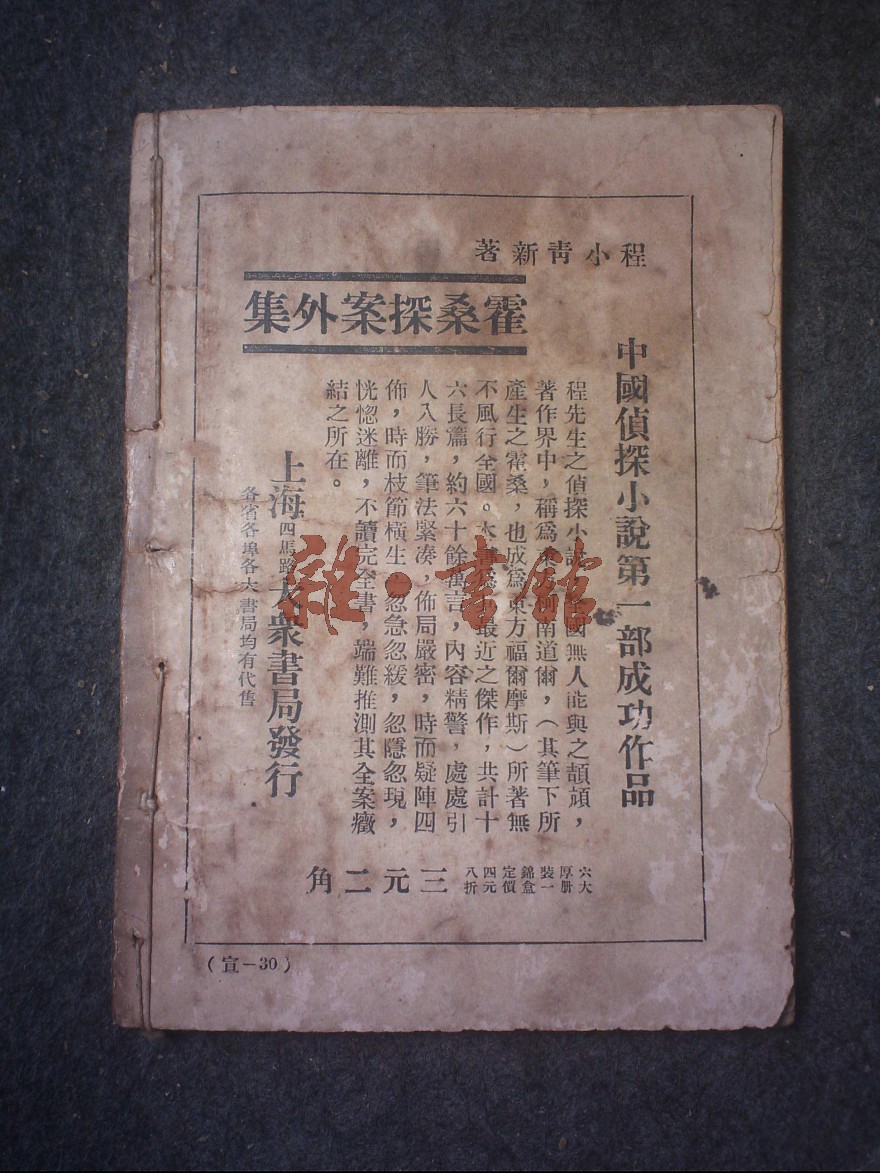 程小青新著
霍桑探案外集
中國偵探小說第一部成功作品
程先生之偵探小說 國無人能與之頡頏，
著作界中，稱爲東方柯南道爾，（其筆下所
產生之霍桑，也成爲東方福爾摩斯）所著無
不風行全國。本書爲 最近之傑作，共計十
六長篇，約六十餘萬言，內容精警，處處引
人入勝，筆法緊凑，佈局嚴密，時而疑陣四
佈，時而枝節橫生，忽急忽緩，忽隱忽現，
恍惚迷離，不讀完全書，端難推測其全案癥
結之所在。
上海四馬路大衆書局發行
各省各埠各大書局均有代售
六大
厚册
裝一
錦盒
定價
四元
八折
三元二角
（宣－30）
雜·書館